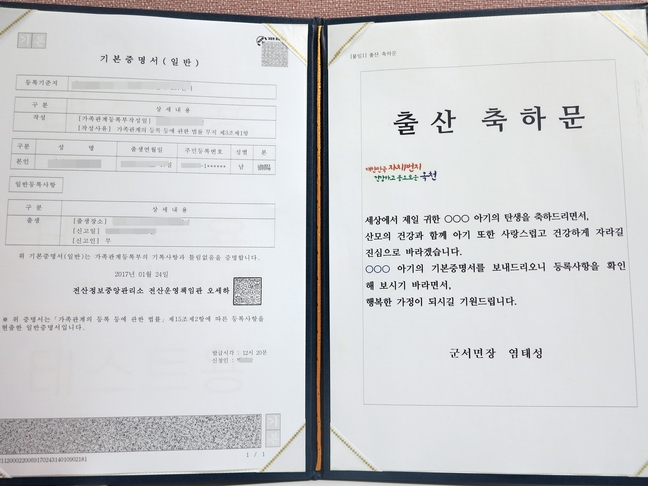 기본증명서(일반)
등록기준지
구 분 상 세 내 용
작성 [가족관계등록부작성일]
[작성사유] 가족관계의 등록 등에 관한 법률 부칙 제3조제1항
구분 성 명 출생연월일 주민등록번호 성별 본
본인 남
일반등록사항
구 분 상 세 내 용
출생 [출생장소]
[신고일]
[신고인] 부
위 기본증명서(일반)는 가족관계등록부의 기록사항과 틀림없음을 증명합니다.
2017년 01월 24일
전산정보중앙관리소 전산운영책임관 오세하
※ 위 증명서는「가족관계의 등록 등에 관한 법률」제15조제2항에 따른 등록사항을
현출한 일반증명서입니다.
발급시각 : 12시 20분
신청인 :
1 / 1
[붙임1] 출산 축하문
출산 축하문
대한민국 자치1번지
건강하고 풍요로운 옥천
세상에서 제일 귀한 ○○○ 아기의 탄생을 축하드리면서,
산모의 건강과 함께 아기 또한 사랑스럽고 건강하게 자라길
진심으로 바라겠습니다.
○○○ 아기의 기본증명서를 보내드리오니 등록사항을 확인
해 보시기 바라면서,
행복한 가정이 되시길 기원드립니다.
군서면장 염태성